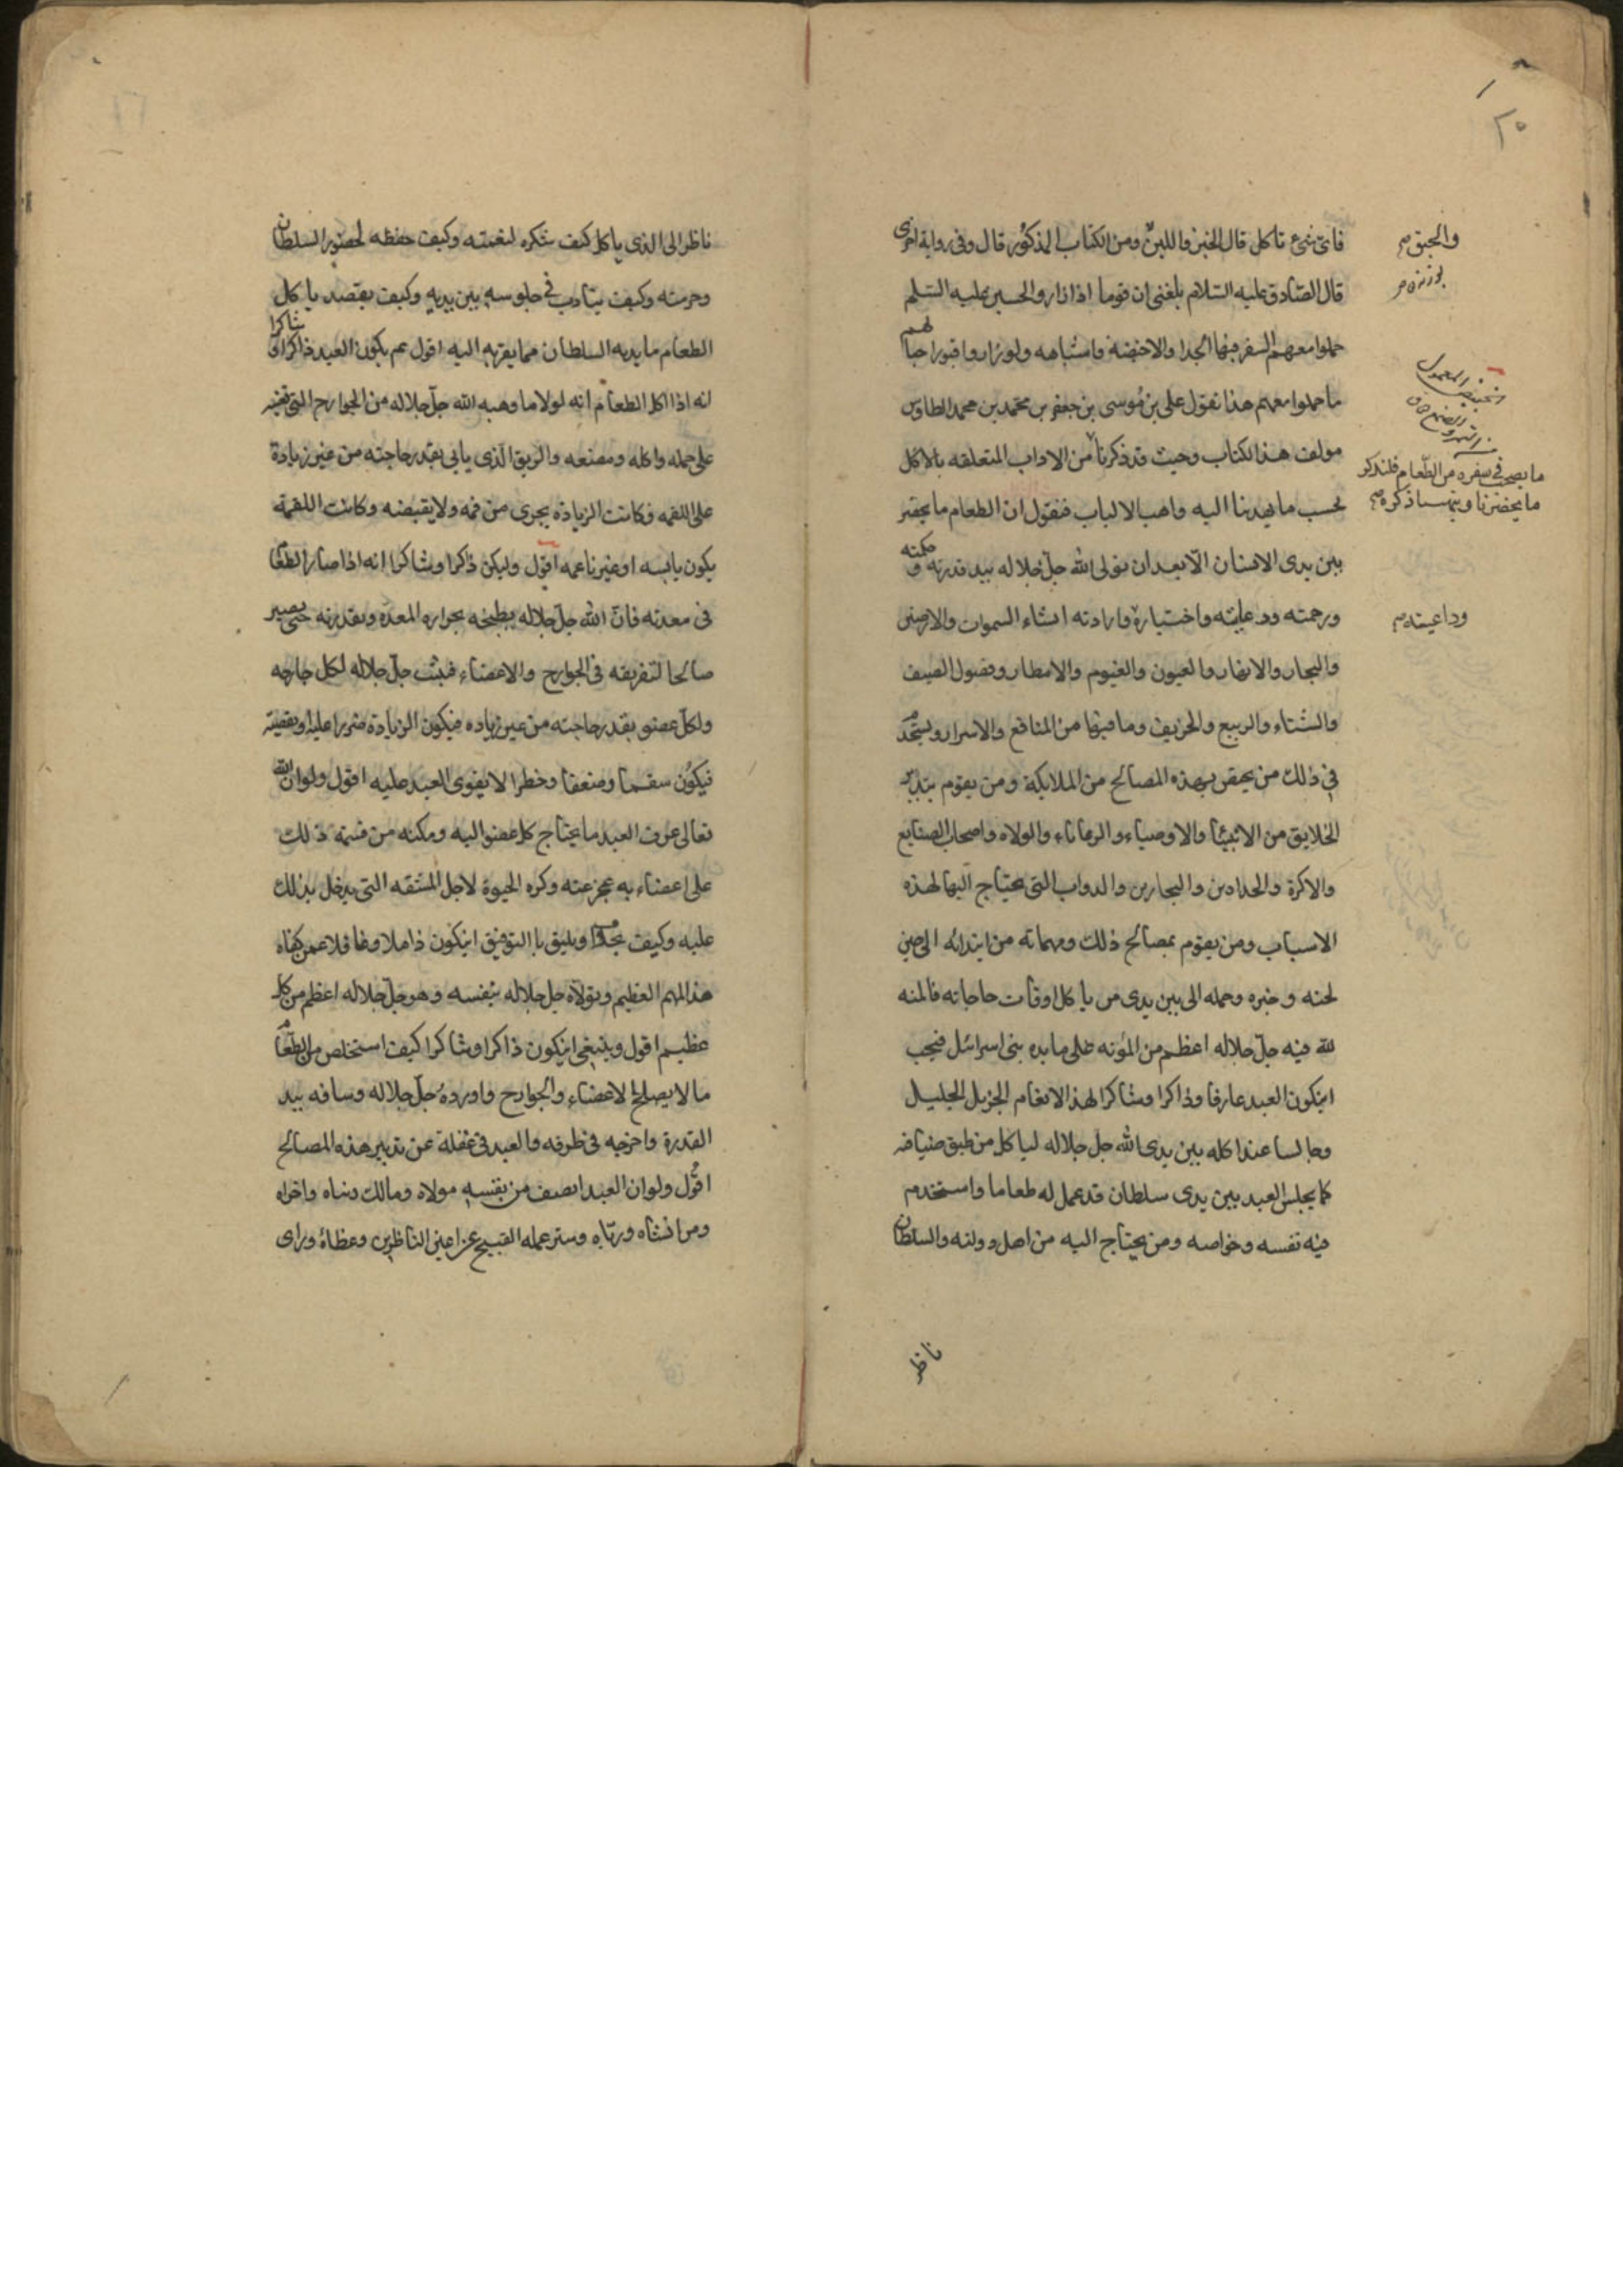 ٢٥
فای شیء تاکل قال الخبز واللبن ومن الکتاب المذکور قال وفی روایة اخری
والجبن صح
قال الصادق علیه السلام بلغنی ان قوما اذا زاروا الحسین علیه السلم
حملوا معهم السفر فیها الجدا والاخبصة واشباهه ولو زاروا قبور احبا لهم
ما حملوا معهم هذا نقول علی بن موسی بن جعفر بن محمد بن محمد الطاوس
مولف هذا الکتاب وحیث قد ذکرنا من الاداب المتعلقه بالاکل
ما یصحب فی سفره من الطعام فلنذکر
ما یحضرنا ذکره صح
بحسب ما یهدینا الیه واهب الالباب فنقول ان الطعام ما یحضر
بین یدی الانسان الا بعد ان یولی الله جل جلاله بید قدرته وحکمته
ورحمته واختیاره وارادته انشاء السموات والارضین
والبحار والانهار والعیون والغیوم والامطار وفصول الصیف
والشتاء والربیع والخریف وما فیها من المنافع والاسرار ویستخدم
فی ذلک من یختص بهذه المصالح من الملایکة ومن یقوم بتدبیر
الخلایق من الانبیا والاوصیاء والولاه واصحاب الصنایع
والاکرة والحدادین والنجارین والدواب التی یحتاج الیها لهذه
الاسباب ومن یقوم بمصالح ذلک ومهماته من ابتدائه الی حین
طحنه وخبزه وحمله الی بین یدی من یاکل اوقات حاجاته فالمنه
لله فیه جل جلاله اعظم من المؤنه علی مایده بنی اسرائیل فیجب
ان یکون العبد عارفا وذاکرا وشاکرا لهذا الانعام الجزیل الجلیل
وجالسا عند اکله بین یدی الله جل جلاله لیاکل من طبق ضیافته
کما یجلس العبد بین یدی سلطان قد عمل له طعاما واستخدم
فیه نفسه وخواصه ومن یحتاج الیه من اهل دولته والسلطان
ناظر
ناظر الی الذی یاکل کیف شکره لنعمته وکیف حفظه لحضور السلطان
وحرمته وکیف یتادب فی جلوسه بین یدیه وکیف یقصد یاکل
الطعام ما یدیه السلطان مما یقربه الیه اقول ثم یکون العبد ذاکرا وشاکرا
انه اذا اکل الطعام انه لولا ما وهبه الله جل جلاله من الجوارح التی تعینه
علی حمله واکله ومضغه والریق الذی یاتی بقدر حاجته من غیر زیادة
علی اللقمه فکانت الزیادة یجری من فمه ولا یقبضه وکانت اللقمة
یکون یابسه او غیر ناعمه اقول ولیکن ذاکرا وشاکرا انه اذا صار الطعام
فی معدته فان الله جل جلاله یطبخه بحراره المعده وبقدرته حتی یصیر
صالحا لتفریقه فی الجوارح والاعضاء فیبعث جل جلاله لکل جارحه
ولکل عضو بقدر حاجته من غیر زیاده فیکون الزیادة ضررا علیه او نقصیة
فیکون سقما وضعفا وخطرا لا یقوی العبد علیه اقول ولو ان الله
تعالی عرف العبد ما یحتاج کل عضو الیه ومکنه من قسمة ذلک
علی اعضاءیه عجز عنه وکره الحیوة لاجل المشقه التی یدخل بذلک
علیه وکیف یجوز ویلیق بالتوفیق ان یکون ذاهلا وغافلا عمن کفاه
هذا المهم العظیم ویولاه جل جلاله بنفسه وهو جل جلاله اعظم من کل
عظیم اقول وینبغی ان یکون ذاکرا وشاکرا کیف استخلص من الطعام
ما لا یصلح للاعضاء والجوارح وافرده جل جلاله وساقه بید
القدرة واخرجه فی طرقه والعبد فی غفلة عن تدبیر هذه المصالح
اقول ولو ان العبد انصف من نفسه مولاه ومالک دنیاه واخراه
ومن انشاه ورباه وستر عمله القبیح عن اعین الناظرین وغطاه ورای